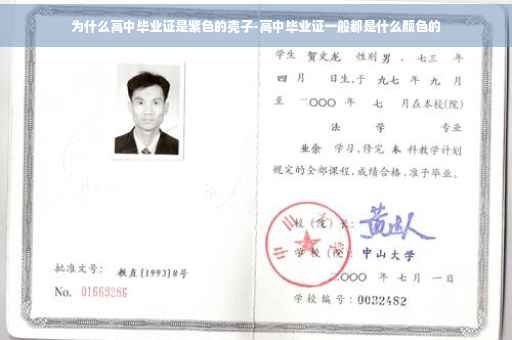 为什么高中毕业证是紫色的壳子-高中毕业证一般都是什么颜色的
学生 贺文龙 性别 男 、七三 年
四 月 日生,于 九七 年 九 月
至 二〇〇〇 年 七 月在本校(院)
法 学 专业
业余 学习,修完 本 科教学计划
规定的全部课程,成绩合格,准予毕业。
校(院)长:
学校(院): 中山大学
二〇〇〇 年 七 月 一 日
批准文号: 教直[1993]8号
No. 01669286
学校编号: 0032482